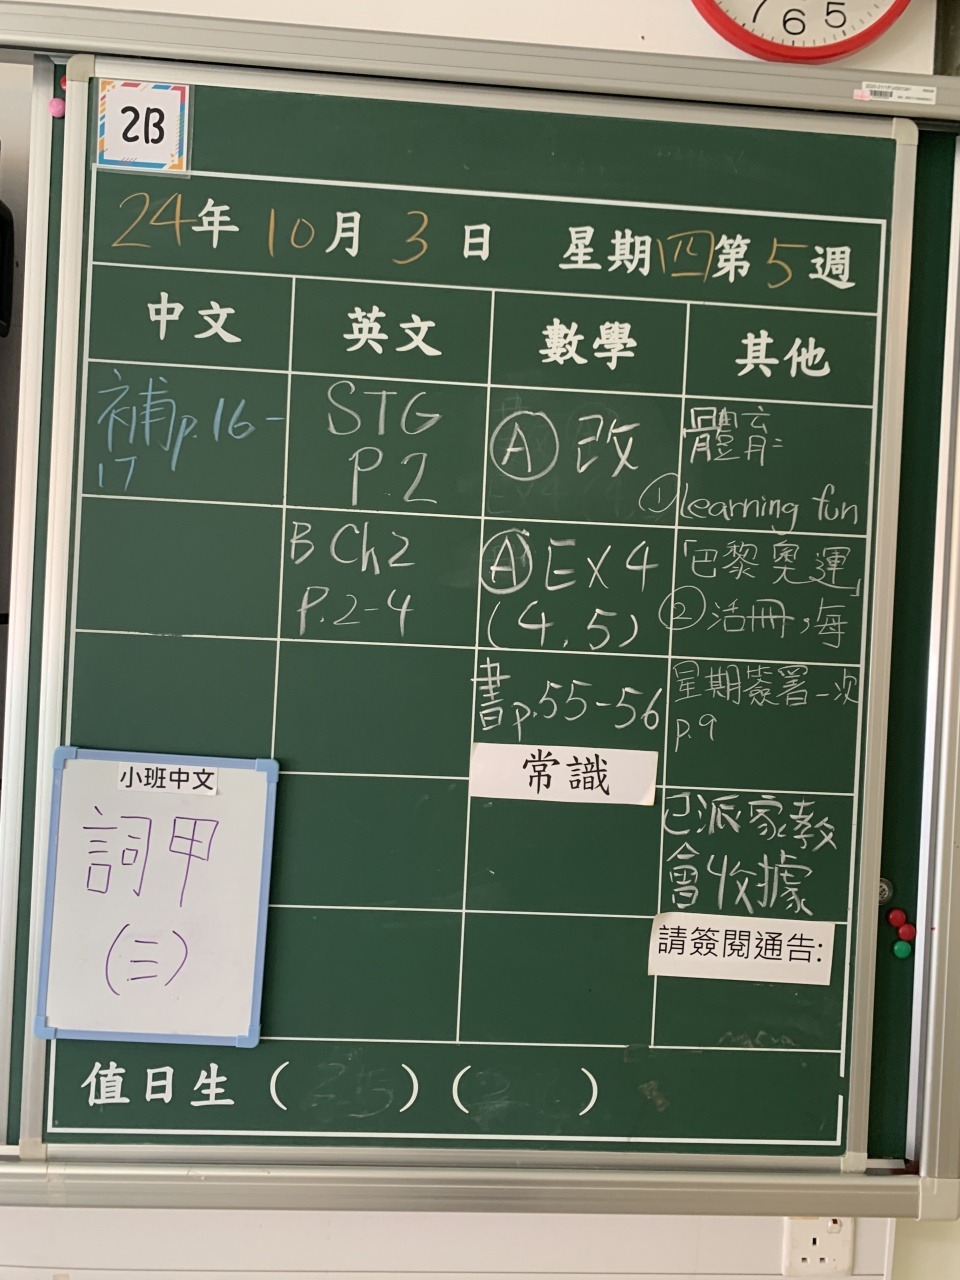 7 6 5
2B
24年 10月 3日 星期四第5週
中文 英文 數學 其他
補p.16-
17
STG
P.2
B Ch2
P.2-4
Ⓐ 改
Ⓐ Ex 4
(4, 5)
書p.55-56
常識
體育:
① learning fun
「巴黎奧運」
② 活冊,每
星期簽署一次
p.9
已派家教
會收據
請簽閱通告:
小班中文
詞甲
(三)
值日生 ( ) ( )